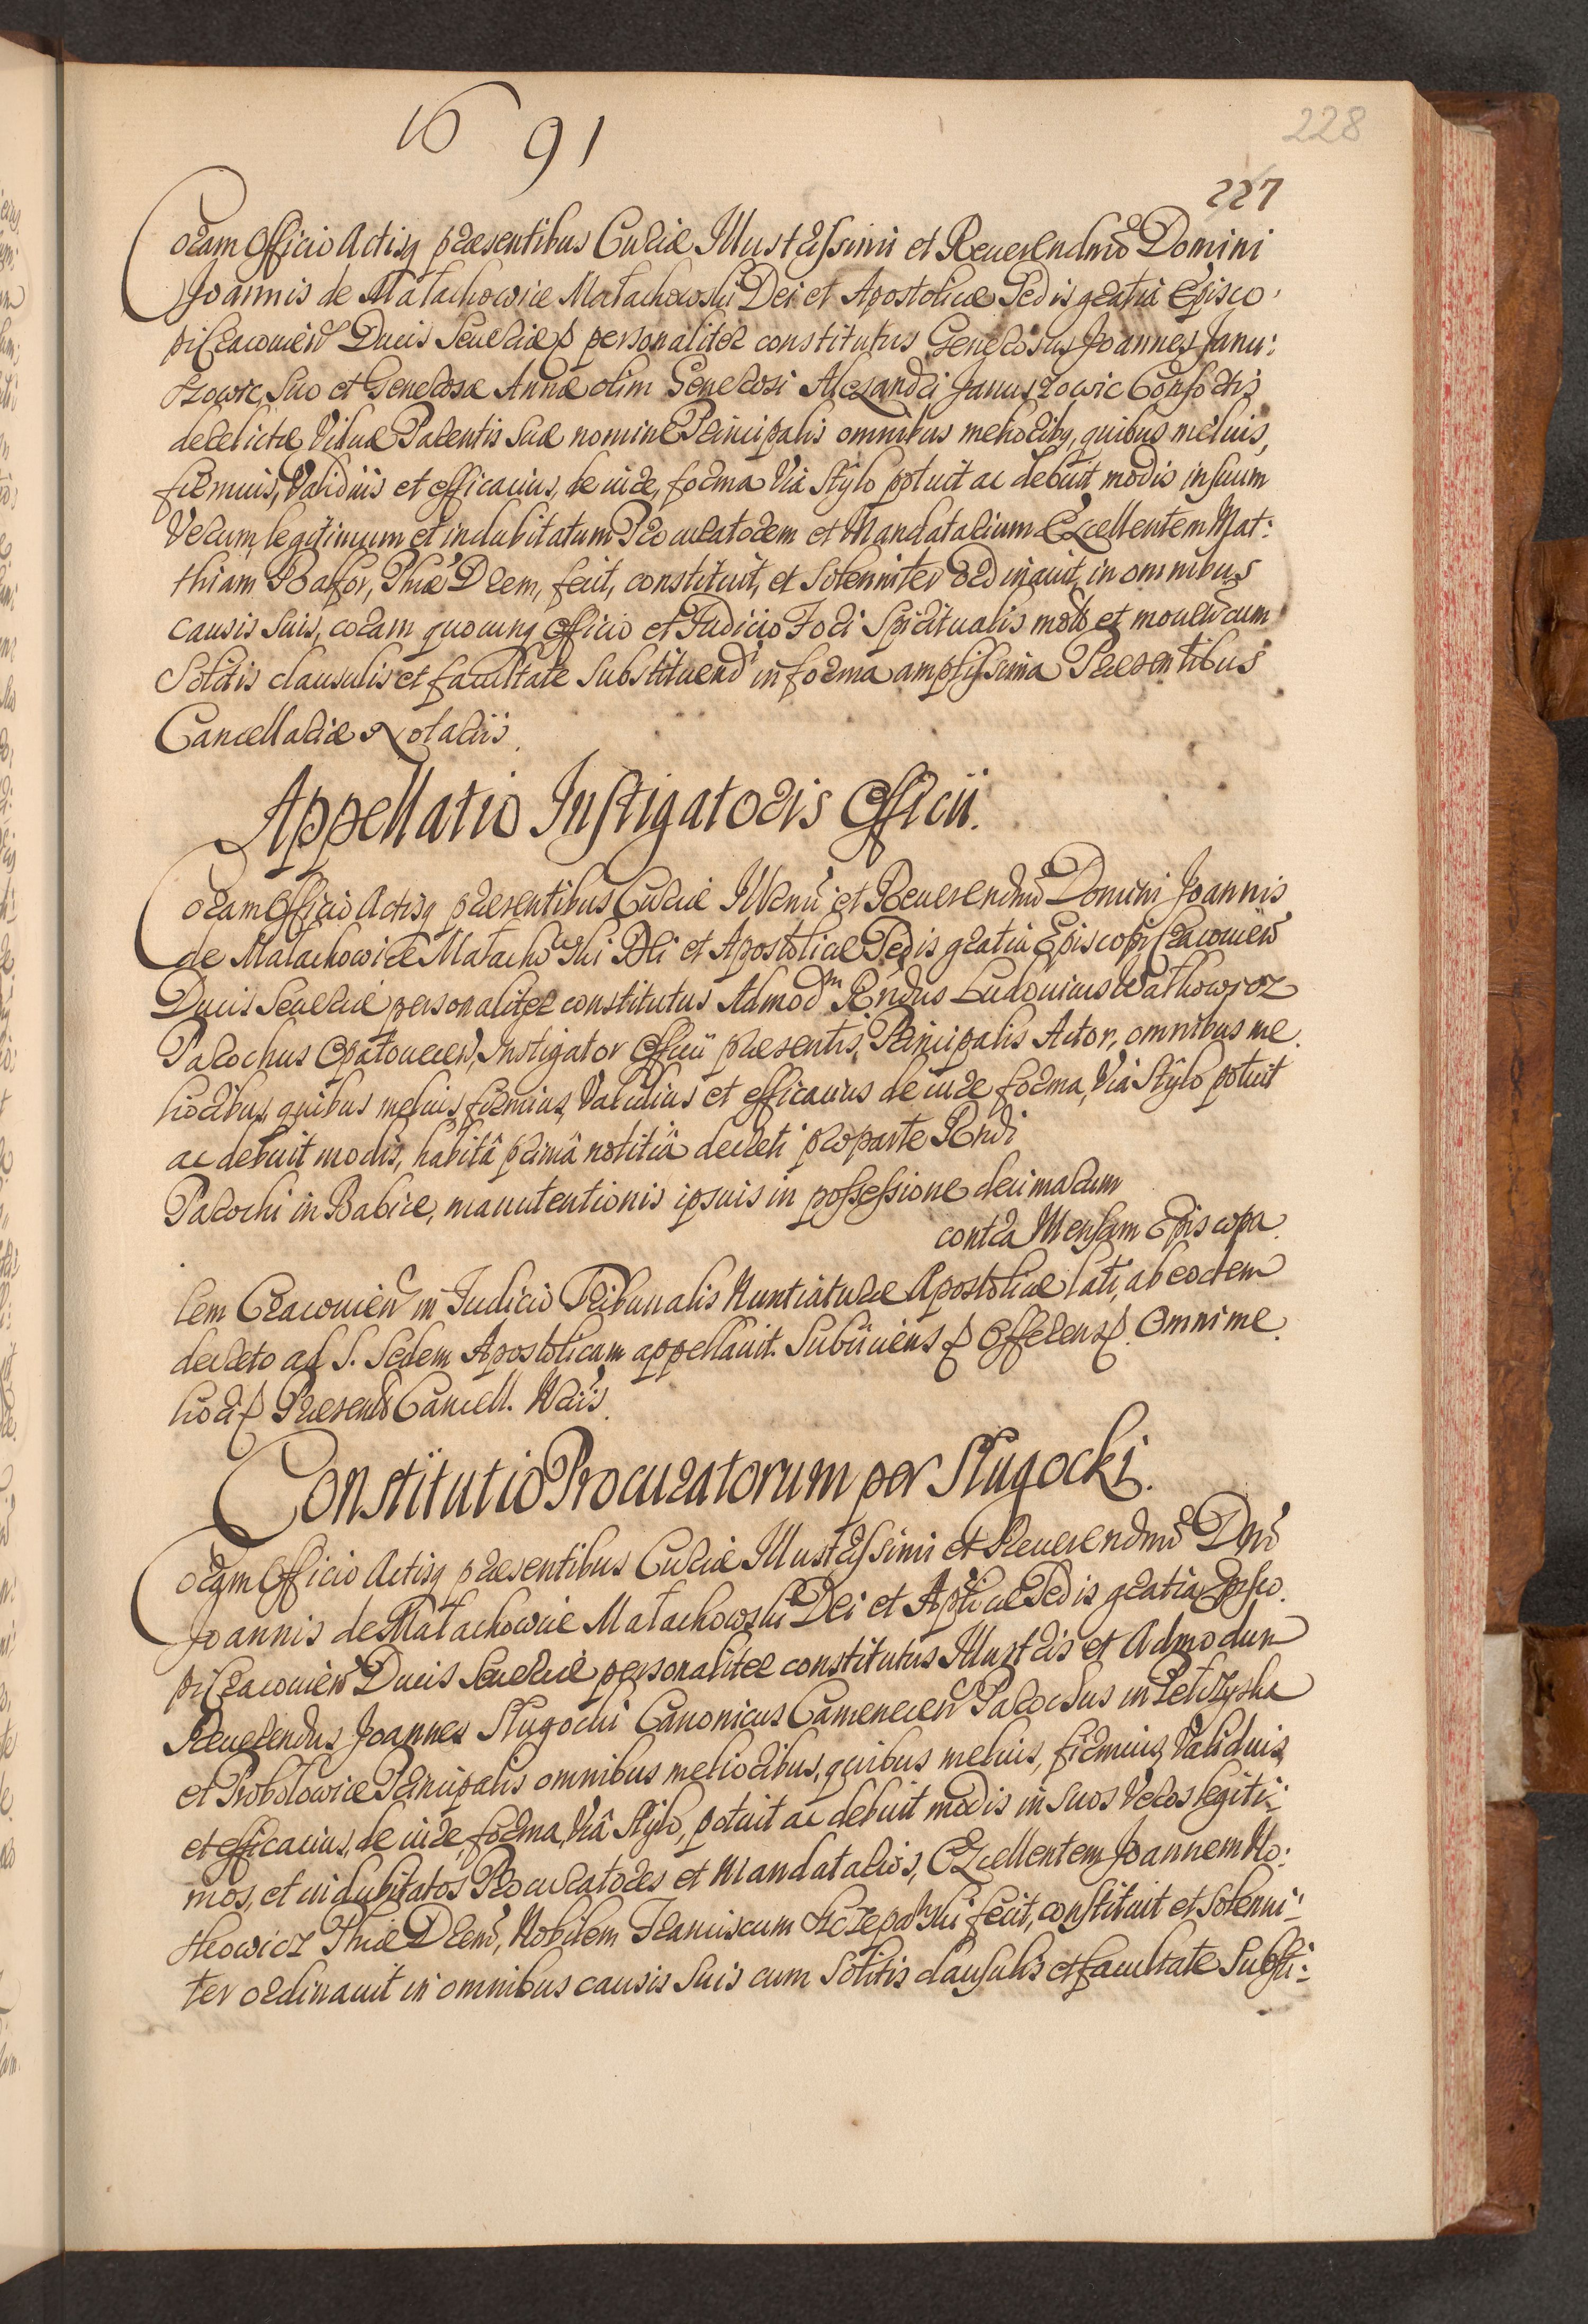 16 91
228
227
Coram Officio Actisq praesentibus Curiae Illustrissimi et Reuerendmi Domini
Joannis de Małachowice Małachowski Dei et Apostolicae Sedis gratia Episco
pi Cracouien Ducis Seueriae personaliter constitutus Generosus Joannes Janu:
szowic Suo et Generosae Annae olim Generosi Alexandri Januszowic Consortis
derelictae Viduae Parentis Suae nomine Principalis omnibus melioribq, quibus melius,
firmius, Validius et efficacius, de iure, forma Via Stylo potuit ac debuit modis in suum
Verum, legitimum et indubitatum Procuratorem et Mandatarium Excellentem Mat:
thiam Phiae Drem, fecit, constituit, et Solenniter ordinauit, in omnibus
causis Suis, coram quocunq Officio et Judicio Fori Spiritualis motis et mouen cum
Solitis clausulis et facultate Substituendi in forma amplissima Praesentibus
Cancellariae Notariis.
Appellatio Instigatoris Officii.
Coram Officio Actisq praesentibus Curiae Illrmi et Reuerendmi Domini Joannis
de Małachowice Małachowski Dei et Apostolicae Sedis gratia Episcopi Cracouien
Ducis Seueriae personaliter constitutus Admodm Rndus Ludouicus
Parochus Opatouecen, Instigator Officii praesentis, Principalis Actor, omnibus me
lioribus, quibus melius, firmius, Validius et efficacius de iure forma, Via Stylo potuit
ac debuit modis, habitâ primâ notitiâ decreti pro parte Rndi
Parochi in Babice, manutentionis ipsius in possessione decimarum
contra Mensam Episcopa
lem Cracouien in Judicio Tribunalis Nuntiaturae Apostolicae lati, ab eodem
decreto ad S. Sedem Apostolicam appellauit. Subiiciens Offerens. Omni me
liori Praesent Cancell. Nriis.
Constitutio Procuratorum per Sługocki.
Coram Officio Actisq praesentibus Curiae Illustrissimi et Reuerendmi Dni
Joannis de Małachowice Małachowski Dei et Aplicae Sedis gratia Episco
pi Cracouien Ducis Seueriae personaliter constitutus Illustris et Admodum
Reuerendus Joannes Sługocki Canonicus Camenecen Parochus in
et Probołowice Principalis omnibus melioribus, quibus melius, firmius, Validius
et efficacius, de iure, forma, Viâ Stylo, potuit ac debuit modis in Suos Veros legiti:
mos, et indubitatos Procuratores et Mandatarios, Excellentem Joannem
Phiae Drem, Nobilem Franciscum fecit, constituit et Solenni:
ter ordinauit in omnibus causis Suis cum Solitis clausulis et facultate Substi: